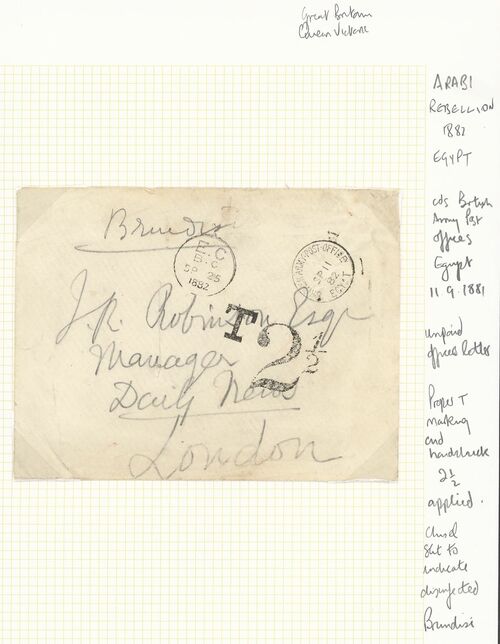 Great Britain
Queen Victoria
ARABI
REBELLION
1882
EGYPT
cds British
Army Post
offices
Egypt
11.9.1881
unpaid
officers letter
Proper T
marking
and
handstruck
2½
applied.
Chisel
Slit to
indicate
disinfected
Brindisi
Brindisi
E.C
B.C
SP 25
1882
BRITISH ARMY POST OFFICE
SP 11
82
EGYPT
T
2½
J.R. Robinson Esqr
Manager
Daily News
London